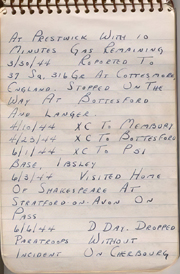 AT PRESTWICK WITH 10
MINUTES GAS REMAINING
3/30/44 REPORTED TO
37 SQ. 316 GR AT COTTESMORE
ENGLAND. STOPPED ON THE
WAY AT BOTTESFORD
AND LANGER.
4/10/44 XC TO MEMBURY
4/23/44 XC TO BOTTESFORD
6/1/44 XC TO P51
BASE, IBSLEY
6/3/44 VISITED HOME
OF SHAKESPEARE AT
STRATFORD-ON-AVON ON
PASS
6/6/44 D DAY. DROPPED
PARATROOPS WITHOUT
INCIDENT ON CHERBOURG